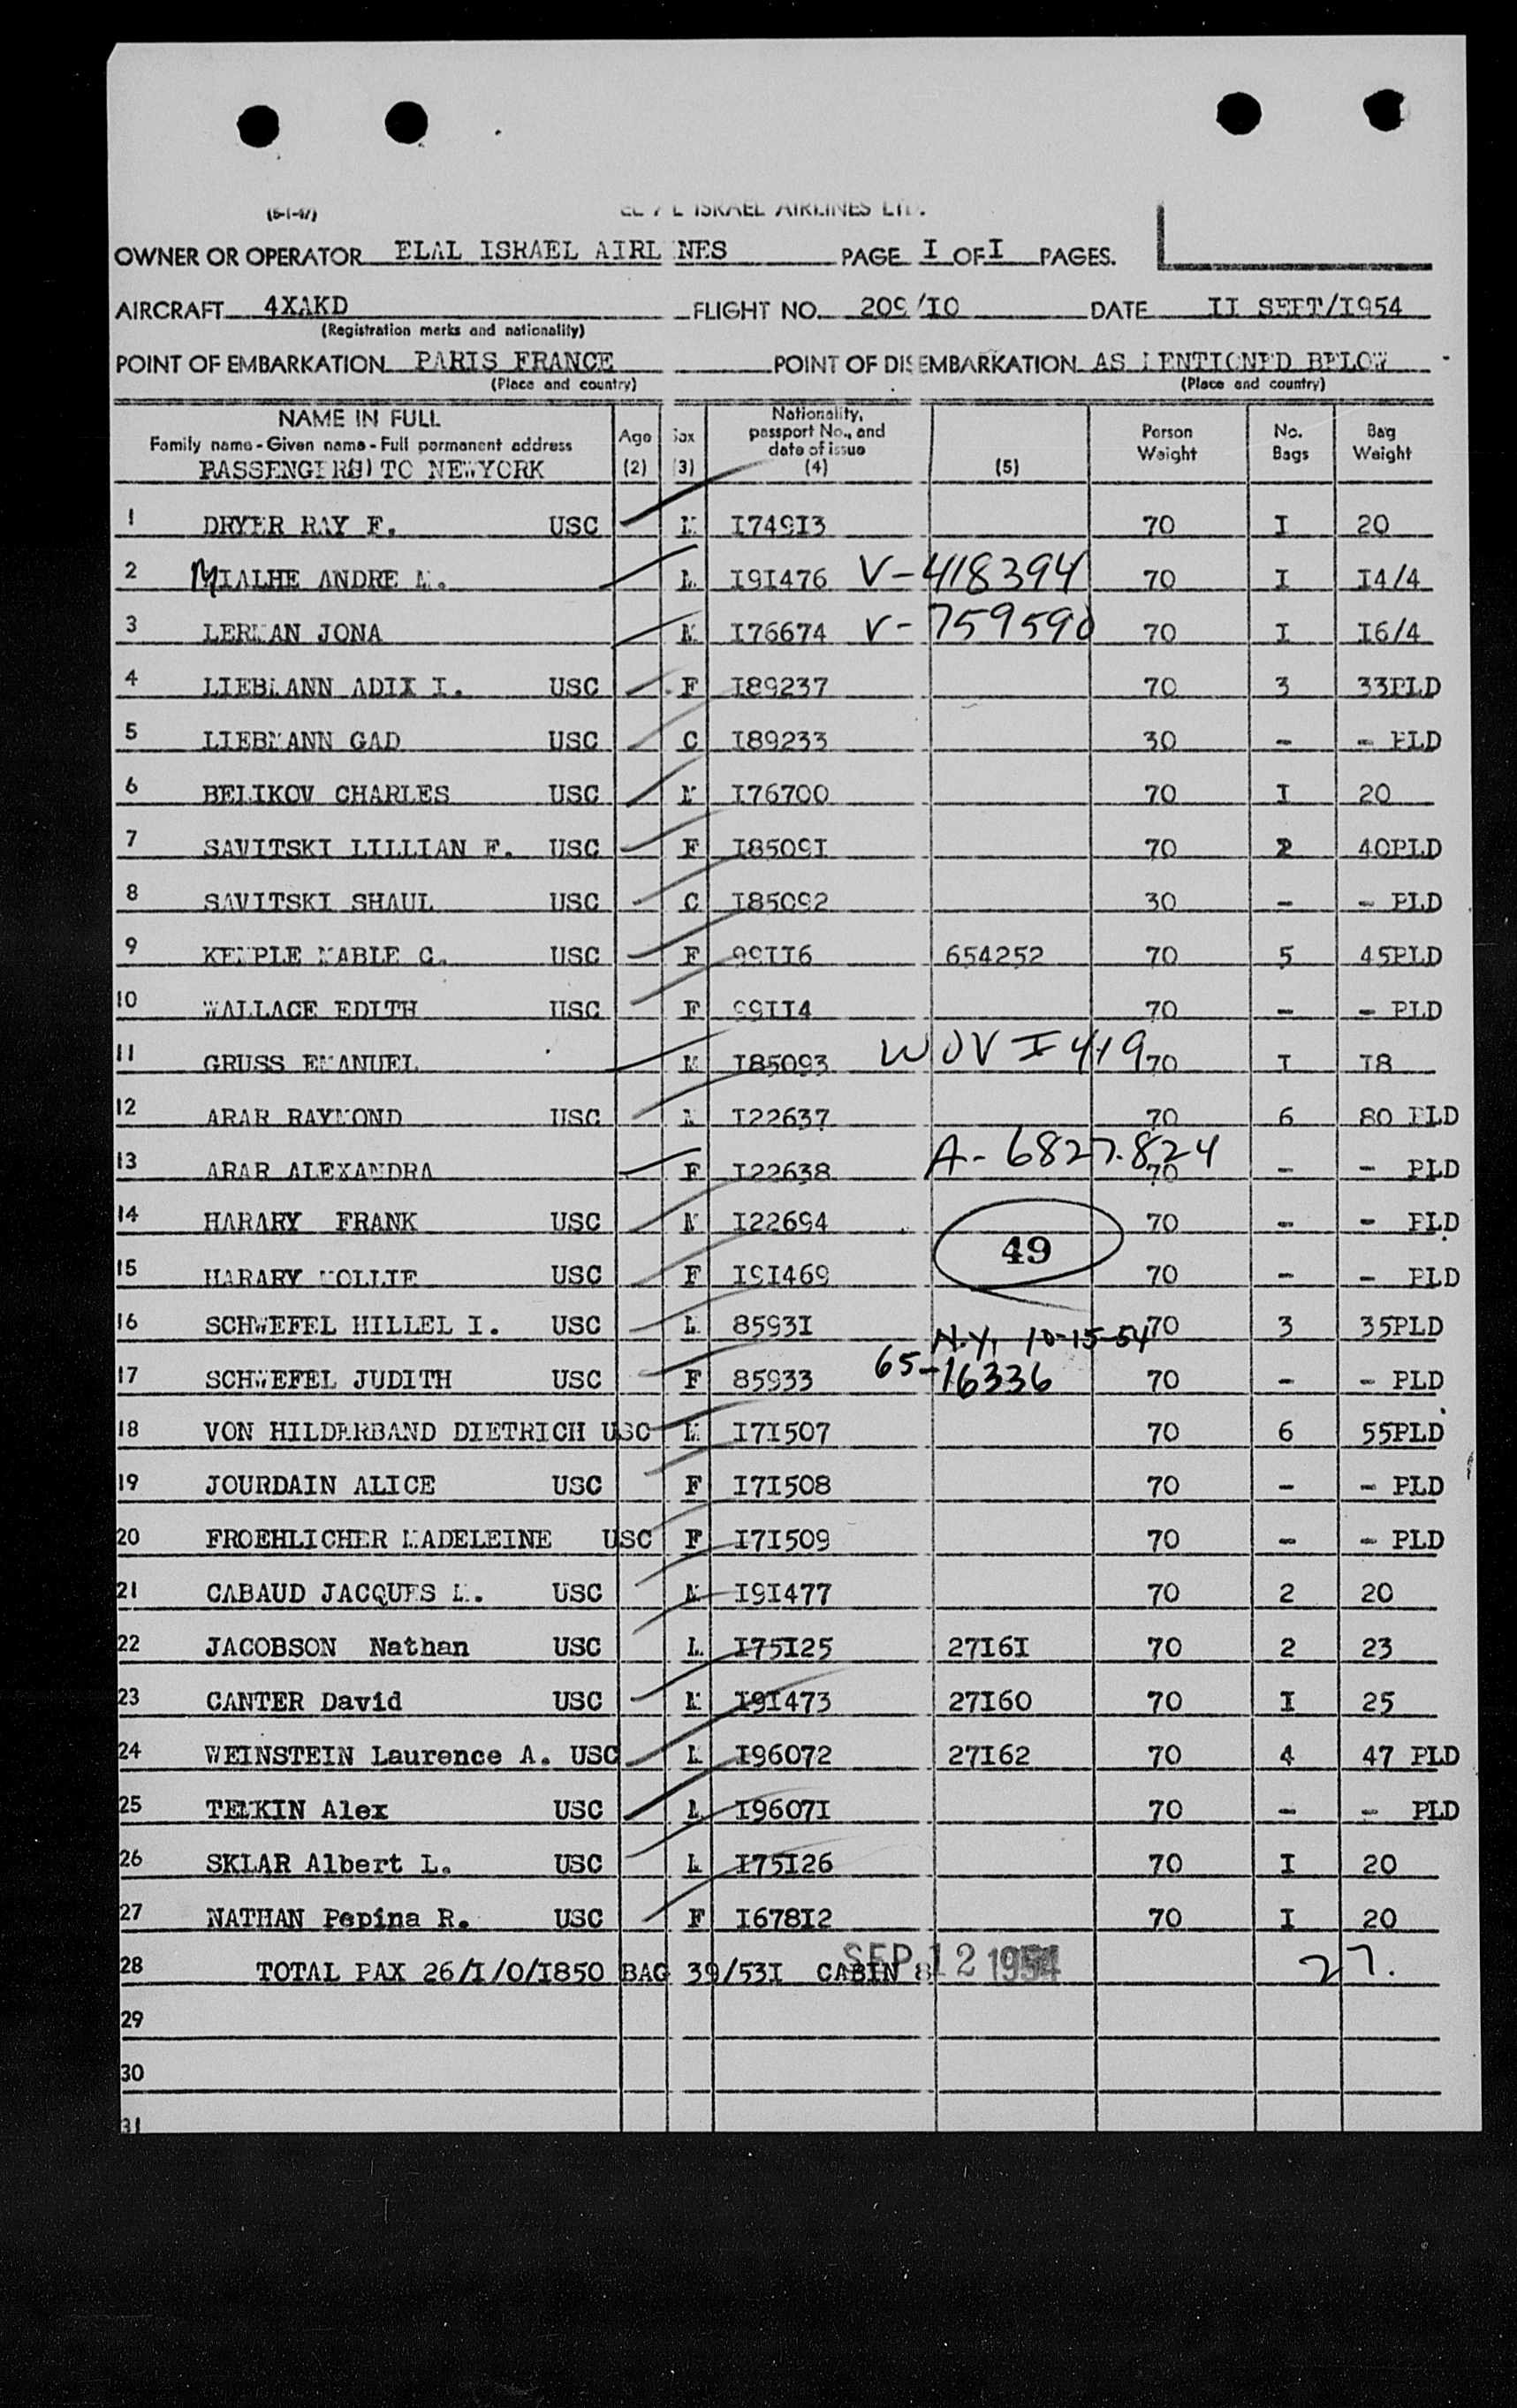 (6-1-47)
EL AL ISRAEL AIRLINES LTD.
OWNER OR OPERATOR ELAL ISRAEL AIRL NES PAGE I OF I PAGES.
AIRCRAFT 4XAKD FLIGHT NO. 209/I0 DATE II SEPT/I954
(Registration marks and nationality)
POINT OF EMBARKATION PARIS FRANCE POINT OF DISEMBARKATION AS MENTIONED BELOW
(Place and country) (Place and country)
NAME IN FULL Age Sex Nationality, passport No., and date of issue Person Weight No. Bags Bag Weight
Family name - Given name - Full permanent address
PASSENGERS TO NEWYORK (2) (3) (4) (5)
1 DRYER RAY F. USC M I749I3 70 I 20
2 MIALHE ANDRE M. M I9I476 V-418394 70 I I4/4
3 LERMAN JONA M I76674 V-759590 70 I I6/4
4 LIEBMANN ADIX I. USC F I89237 70 3 33PLD
5 LIEBMANN GAD USC C I89233 30 - - PLD
6 BELIKOV CHARLES USC M I76700 70 I 20
7 SAVITSKI LILLIAN F. USC F I8509I 70 2 40PLD
8 SAVITSKI SHAUL USC C I85092 30 - - PLD
9 KEMPLE MABLE C. USC F 99II6 654252 70 5 45PLD
10 WALLACE EDITH USC F 99II4 70 - - PLD
11 GRUSS EMANUEL M I85093 WOV I 419 70 I I8
12 ARAR RAYMOND USC M I22637 70 6 80 PLD
13 ARAR ALEXANDRA F I22638 A-6827.824 70 - - PLD
14 HARARY FRANK USC M I22694 70 - - PLD
49
15 HARARY MOLLIE USC F I9I469 70 - - PLD
16 SCHWEFEL HILLEL I. USC M 8593I 70 3 35PLD
N.Y. 10-15-54
17 SCHWEFEL JUDITH USC F 85933 65-16336 70 - - PLD
18 VON HILDERBAND DIETRICH USC M I7I507 70 6 55PLD
19 JOURDAIN ALICE USC F I7I508 70 - - PLD
20 FROEHLICHER MADELEINE USC F I7I509 70 - - PLD
21 CABAUD JACQUES M. USC M I9I477 70 2 20
22 JACOBSON Nathan USC M I75I25 27I6I 70 2 23
23 CANTER David USC M I9I473 27I60 70 I 25
24 WEINSTEIN Laurence A. USC M I96072 27I62 70 4 47 PLD
25 TEMKIN Alex USC M I9607I 70 - - PLD
26 SKLAR Albert L. USC M I75I26 70 I 20
27 NATHAN Pepina R. USC F I678I2 70 I 20
28 TOTAL PAX 26/I/0/I850 BAG 39/53I CABIN 8 SEP 12 1954 27.
29
30
31